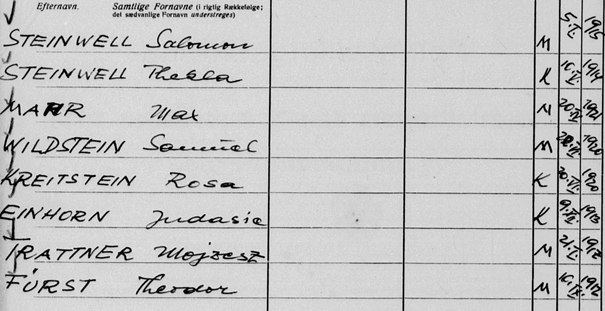 Efternavn. Samtlige Fornavne (i rigtig Rækkefølge; det sædvanlige Fornavn understreges)
STEINWELL Salomon M 1915
STEINWELL Thekla K 1914
MAHR Max M 1921
WILDSTEIN Samuel M 1920
KREITSTEIN Rosa K 1920
EINHORN Judasie K 1913
TRATTNER Mojzesz M
FÜRST Theodor M 1912